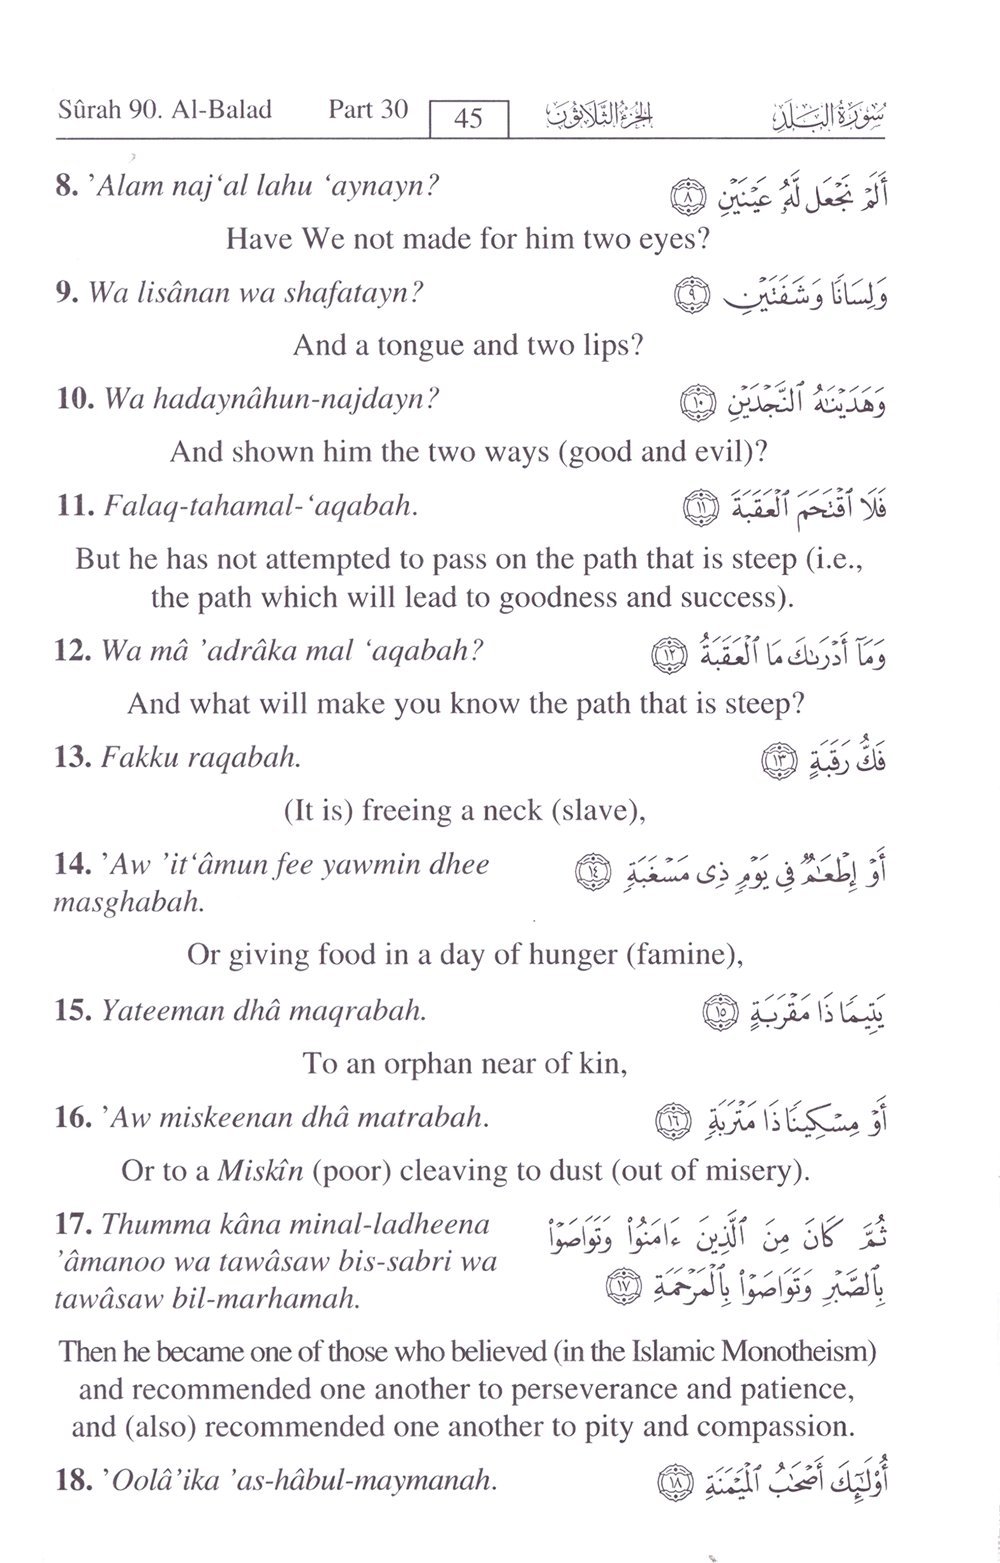 Sûrah 90. Al-Balad Part 30 45 الجزء الثلاثون سورة البلد
8. ’Alam naj‘al lahu ‘aynayn? أَلَمْ نَجْعَل لَّهُۥ عَيْنَيْنِ ٨
Have We not made for him two eyes?
9. Wa lisânan wa shafatayn? وَلِسَانًا وَشَفَتَيْنِ ٩
And a tongue and two lips?
10. Wa hadaynâhun-najdayn? وَهَدَيْنَٰهُ ٱلنَّجْدَيْنِ ١٠
And shown him the two ways (good and evil)?
11. Falaq-tahamal-‘aqabah. فَلَا ٱقْتَحَمَ ٱلْعَقَبَةَ ١١
But he has not attempted to pass on the path that is steep (i.e.,
the path which will lead to goodness and success).
12. Wa mâ ’adrâka mal ‘aqabah? وَمَآ أَدْرَىٰكَ مَا ٱلْعَقَبَةُ ١٢
And what will make you know the path that is steep?
13. Fakku raqabah. فَكُّ رَقَبَةٍ ١٣
(It is) freeing a neck (slave),
14. ’Aw ’it‘âmun fee yawmin dhee أَوْ إِطْعَٰمٌ فِى يَوْمٍ ذِى مَسْغَبَةٍ ١٤
masghabah.
Or giving food in a day of hunger (famine),
15. Yateeman dhâ maqrabah. يَتِيمًا ذَا مَقْرَبَةٍ ١٥
To an orphan near of kin,
16. ’Aw miskeenan dhâ matrabah. أَوْ مِسْكِينًا ذَا مَتْرَبَةٍ ١٦
Or to a Miskîn (poor) cleaving to dust (out of misery).
17. Thumma kâna minal-ladheena ثُمَّ كَانَ مِنَ ٱلَّذِينَ ءَامَنُوا۟ وَتَوَاصَوْا۟
’âmanoo wa tawâsaw bis-sabri wa بِٱلصَّبْرِ وَتَوَاصَوْا۟ بِٱلْمَرْحَمَةِ ١٧
tawâsaw bil-marhamah.
Then he became one of those who believed (in the Islamic Monotheism)
and recommended one another to perseverance and patience,
and (also) recommended one another to pity and compassion.
18. ’Oolâ’ika ’as-hâbul-maymanah. أُو۟لَٰٓئِكَ أَصْحَٰبُ ٱلْمَيْمَنَةِ ١٨